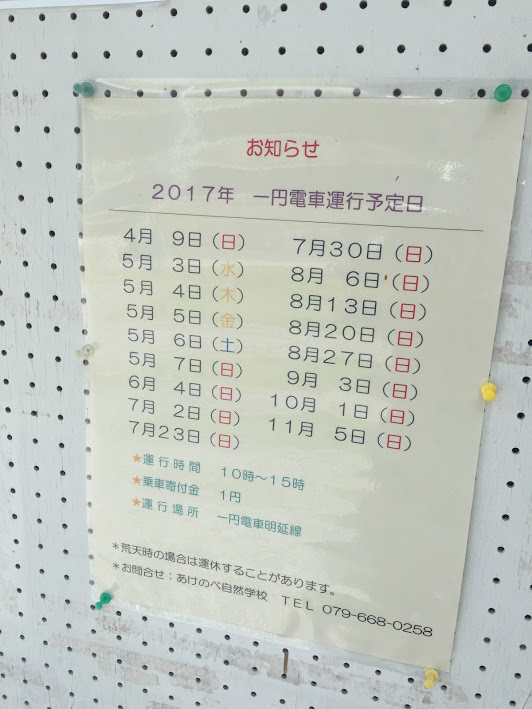 お知らせ
2017年 一円電車運行予定日
4月 9日(日)
5月 3日(水)
5月 4日(木)
5月 5日(金)
5月 6日(土)
5月 7日(日)
6月 4日(日)
7月 2日(日)
7月23日(日)
7月30日(日)
8月 6日(日)
8月13日(日)
8月20日(日)
8月27日(日)
9月 3日(日)
10月 1日(日)
11月 5日(日)
★運行時間 10時～15時
★乗車寄付金 1円
★運行場所 一円電車明延線
＊荒天時の場合は運休することがあります。
＊お問合せ：あけのべ自然学校 TEL 079-668-0258